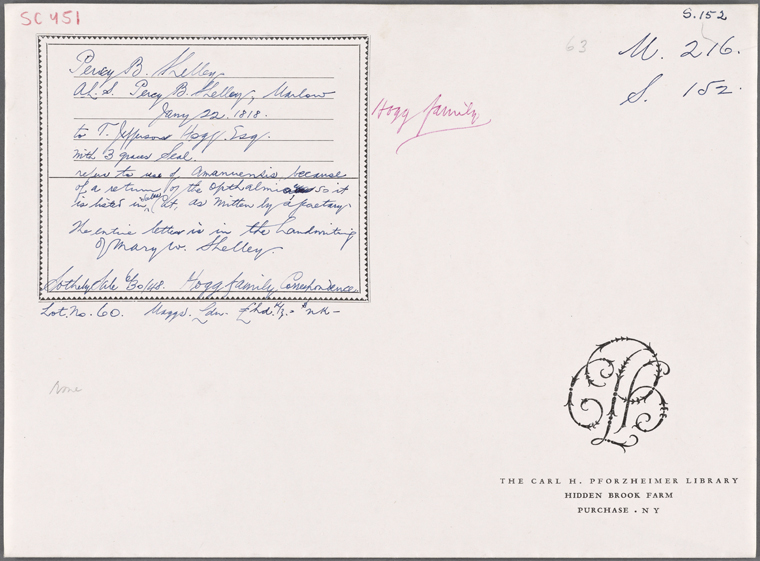 SC 451
S. 152
63
M. 216.
S. 152.
Percy B. Shelley
A.L.S. Percy B. Shelley, Marlow
Jany 22. 1818.
to T. Jefferson Hogg. Esq.
with 3 graces Seal.
refers to use of Amanuensis, because
of a return of the opthalmia so it
is listed in Sales Cat. as written by a secretary.
The entire letter is in the handwriting
of Mary W. Shelley.
Sotheby Sale 6/30/48. Hogg family Correspondence.
Lot. No. 60. Maggs. Ldn.
Hogg family
None
THE CARL H. PFORZHEIMER LIBRARY
HIDDEN BROOK FARM
PURCHASE . NY